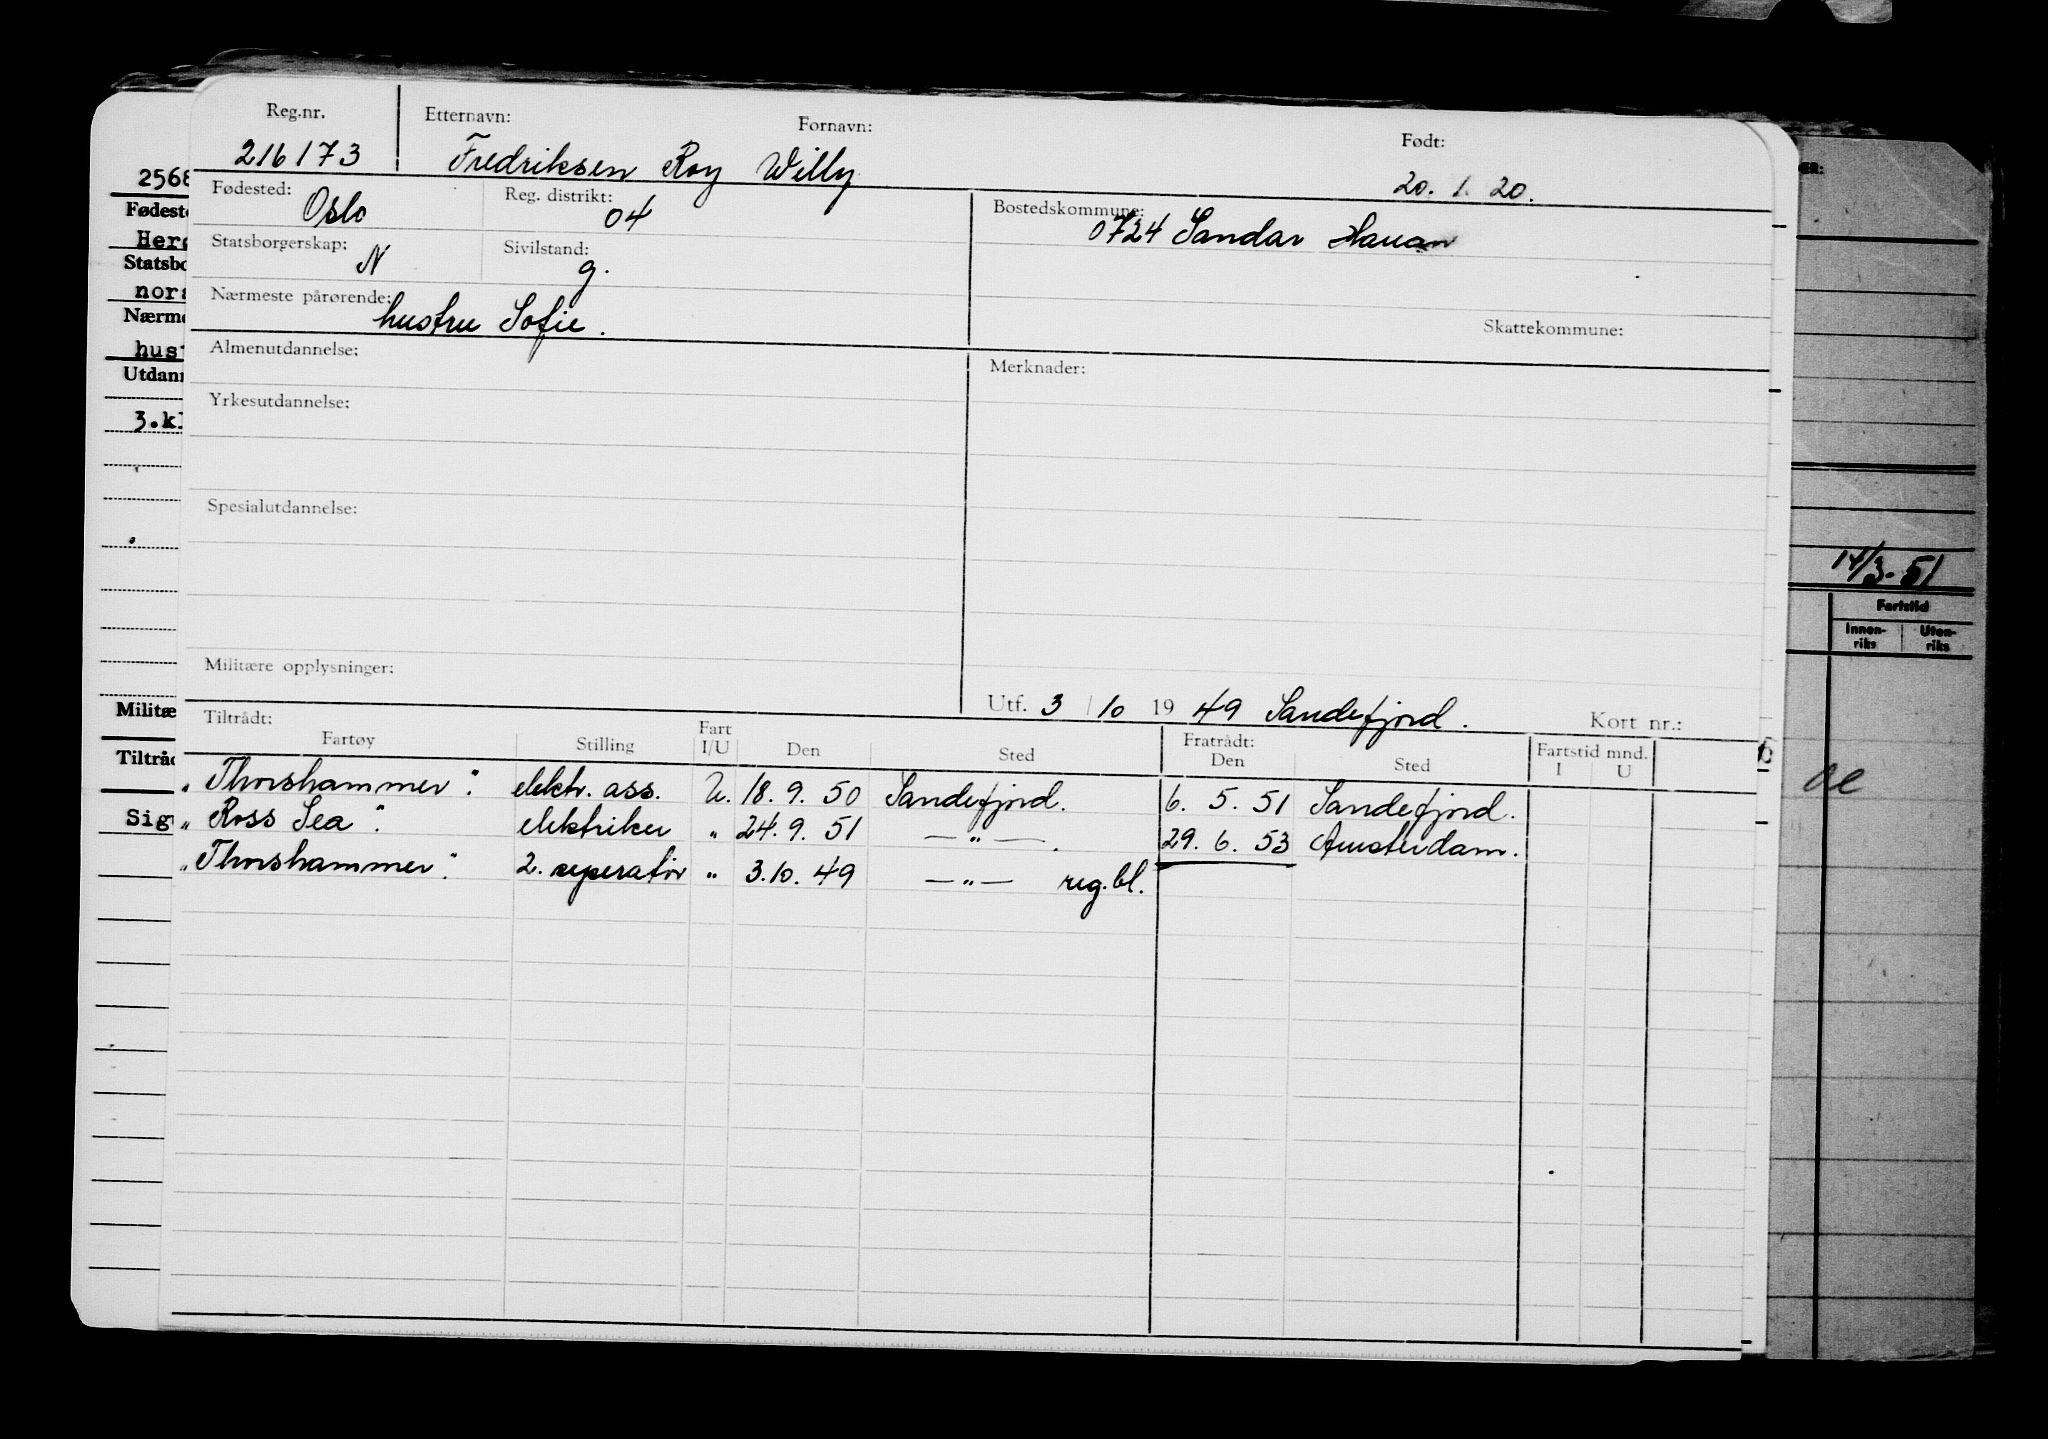 Reg.nr. Etternavn: Fornavn: Født:
216173 Fredriksen Roy Willy 20. 1. 20.
Fødested: Oslo Reg. distrikt: 04 Bostedskommune: 0724 Sandar Hauan
Statsborgerskap: N Sivilstand: g.
Nærmeste pårørende: hustru Sofie. Skattekommune:
Almenutdannelse: Merknader:
Yrkesutdannelse:
Spesialutdannelse:
Militære opplysninger:
Utf. 3/10 19 49 Sandefjord. Kort nr.:
Tiltrådt: Fratrådt:
Fartøy Stilling Fart I/U Den Sted Den Sted Fartstid mnd. I U
"Thorshammer". elektr. ass. U. 18. 9. 50 Sandefjord. 6. 5. 51 Sandefjord.
"Ross Sea". elektriker " 24. 9. 51 —"—. 29. 6. 53 Amsterdam.
"Thorshammer". 2. seperatør " 3.10. 49 —"— reg.bl.
2568
Fødest
Her
Statsbo
nors
Nærme
hust
Utdann
3.kl
Militæ
Tiltråd
Sig
ER:
14/3-51
Fartstid
Innen-riks Uten-riks